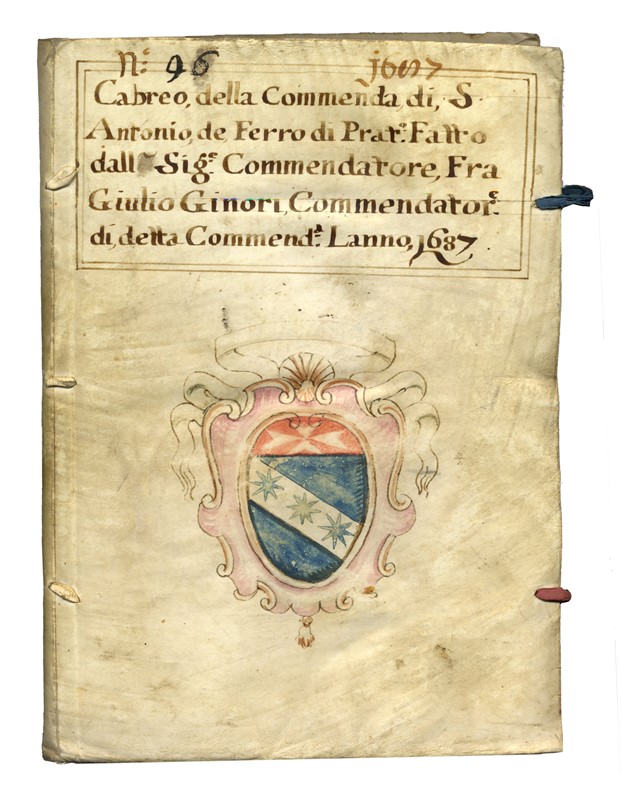 N.º 96 1687
Cabreo, della Commenda, di, S
Antonio, de Ferro di Prat.º Fatto
dall Sig.ʳᵉ Commendatore, Fra
Giulio Ginori, Commendator.ᵉ
di, detta Commend.ª Lanno, 1687